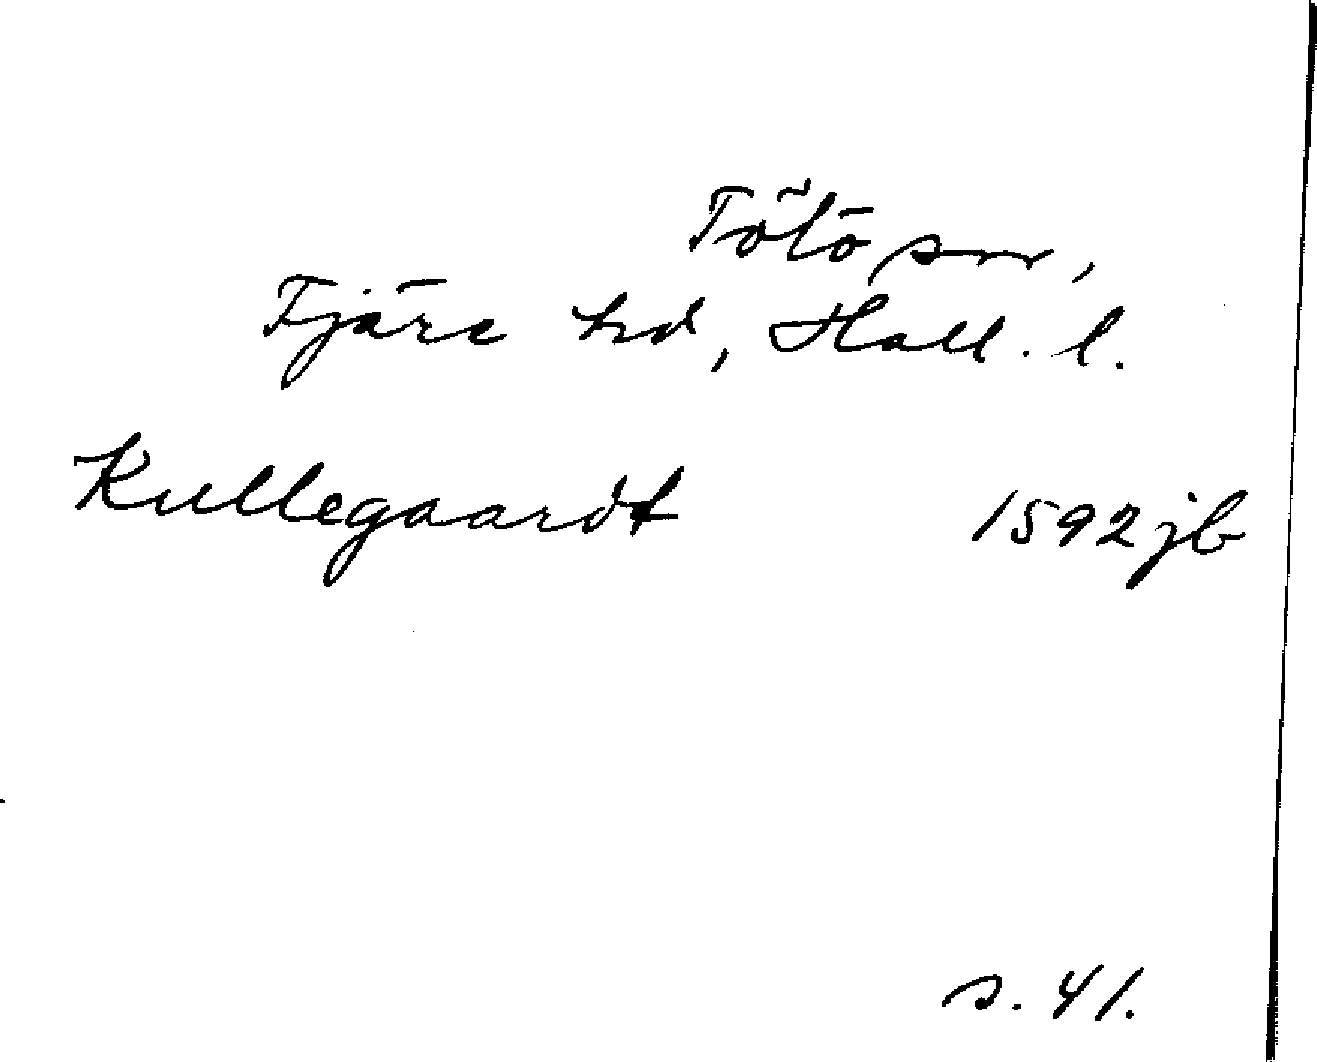 Tölö sn,
Fjäre hd, Hall. l.
Kullegaardt 1592 jb
s. 41.